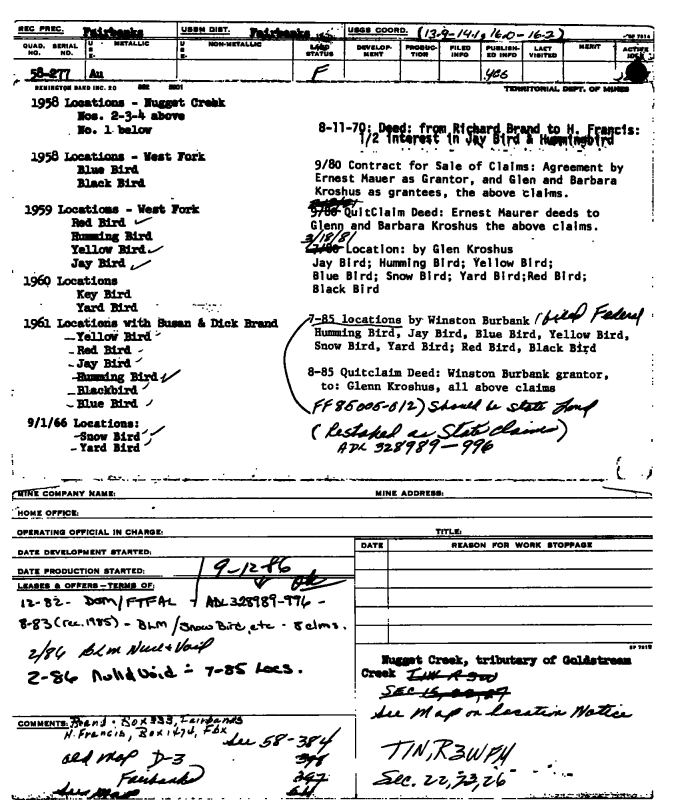 REC PREC. Fairbanks USBM DIST. Fairbanks USGS COORD. (13.9-14.1, 16.0-16.2)
QUAD. NO. SERIAL NO. METALLIC NON-METALLIC LAND STATUS DEVELOP-MENT PRODUC-TION FILED INFO PUBLISH-ED INFO LAST VISITED MERIT ACTIVE
58-277 Au F yes
REMINGTON RAND INC. TERRITORIAL DEPT. OF MINES
1958 Locations - Nugget Creek
Nos. 2-3-4 above
No. 1 below
1958 Locations - West Fork
Blue Bird
Black Bird
1959 Locations - West Fork
Red Bird ✓
Humming Bird
Yellow Bird ✓
Jay Bird ✓
1960 Locations
Key Bird
Yard Bird
1961 Locations with Susan & Dick Brand
Yellow Bird
Red Bird
Jay Bird
Humming Bird
Blackbird
Blue Bird
9/1/66 Locations:
Snow Bird
Yard Bird
8-11-70: Deed: from Richard Brand to H. Francis:
1/2 interest in Jay Bird & Hummingbird
9/80 Contract for Sale of Claims: Agreement by
Ernest Mauer as Grantor, and Glen and Barbara
Kroshus as grantees, the above claims.
9/80 QuitClaim Deed: Ernest Maurer deeds to
Glenn and Barbara Kroshus the above claims.
3/18/81
Location: by Glen Kroshus
Jay Bird; Humming Bird; Yellow Bird;
Blue Bird; Snow Bird; Yard Bird;Red Bird;
Black Bird
7-85 locations by Winston Burbank (filed Federal
Humming Bird, Jay Bird, Blue Bird, Yellow Bird,
Snow Bird, Yard Bird; Red Bird, Black Bird
8-85 Quitclaim Deed: Winston Burbank grantor,
to: Glenn Kroshus, all above claims
FF85006-012) Should be state land
(Restaked as State Claims)
ADL 328989-996
MINE COMPANY NAME: MINE ADDRESS:
HOME OFFICE:
OPERATING OFFICIAL IN CHARGE: TITLE:
DATE DEVELOPMENT STARTED:
DATE PRODUCTION STARTED: 9-12-86
LEASES & OFFERS-TERMS OF: ok
12-82- DOM/FTFAL - ADL 328989-996 -
8-83 (rec. 1985) - BLM / Snow Bird, etc - 8 clms.
2/86 BLM Null & Void
2-86 Null & Void - 7-85 Locs.
COMMENTS: Brand - Box 333, Fairbanks
H. Francis, Box 1471, FBX
See 58-384
old map D-3
Fairbanks
See Map
DATE REASON FOR WORK STOPPAGE
Nugget Creek, tributary of Goldstream
Creek
See Map on Location Notice
T1N, R3W FM
Sec. 22, 23, 26